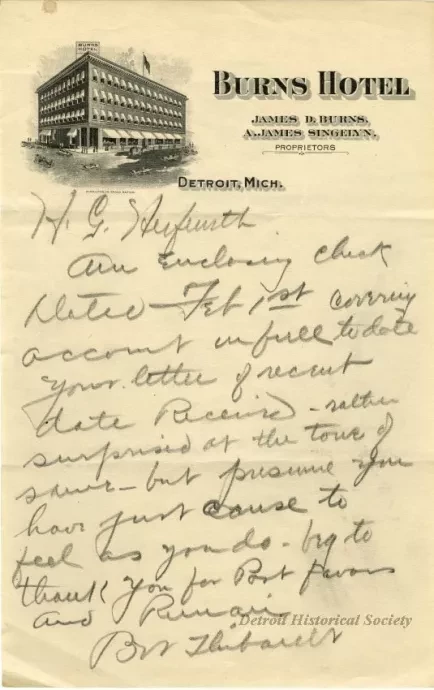 BURNS HOTEL
BURNS HOTEL
JAMES D. BURNS,
A. JAMES SINGELYN.
PROPRIETORS
DETROIT, MICH.
H. G.
Am Enclosing check
Dated - Feb 1st covering
account in full to date
your letter of recent
date Received - rather
surprised at the tone of
same - but presume you
have just cause to
feel as you do - beg to
thank you for Past favors
and Remain
Detroit Historical Society